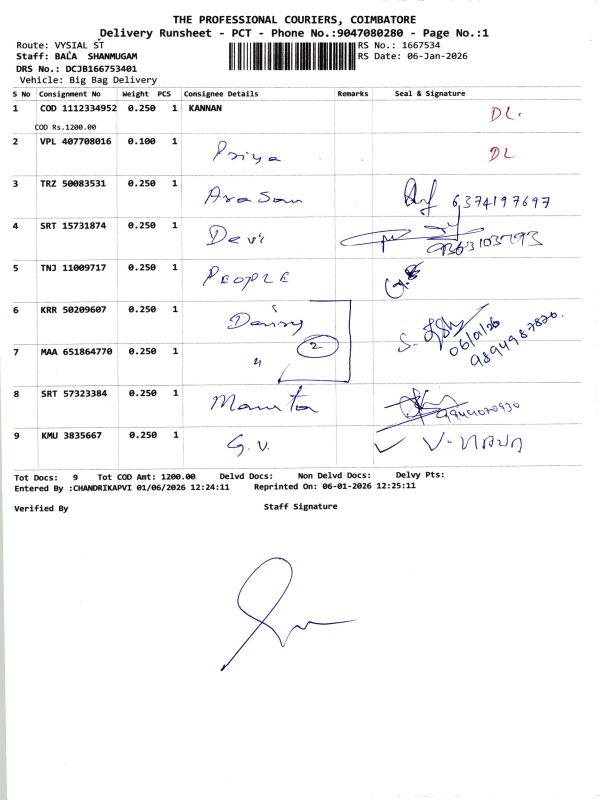 THE PROFESSIONAL COURIERS, COIMBATORE
Delivery Runsheet - PCT - Phone No.:9047080280 - Page No.:1
Route: VYSIAL ST
RS No.: 1667534
Staff: BALA SHANMUGAM
RS Date: 06-Jan-2026
DRS No.: DCJB166753401
Vehicle: Big Bag Delivery
S No Consignment No Weight PCS Consignee Details Remarks Seal & Signature
1 COD 1112334952 0.250 1 KANNAN DL.
COD Rs.1200.00
2 VPL 407708016 0.100 1 Priya DL
3 TRZ 50083531 0.250 1 Arasan 6374197697
4 SRT 15731874 0.250 1 Devi
5 TNJ 11009717 0.250 1 PEOPLE
6 KRR 50209607 0.250 1
2
06/01/26
9894987820.
7 MAA 651864770 0.250 1 "
8 SRT 57323384 0.250 1
9 KMU 3835667 0.250 1 G.V.
Tot Docs: 9 Tot COD Amt: 1200.00 Delvd Docs: Non Delvd Docs: Delvy Pts:
Entered By :CHANDRIKAPVI 01/06/2026 12:24:11 Reprinted On: 06-01-2026 12:25:11
Verified By Staff Signature